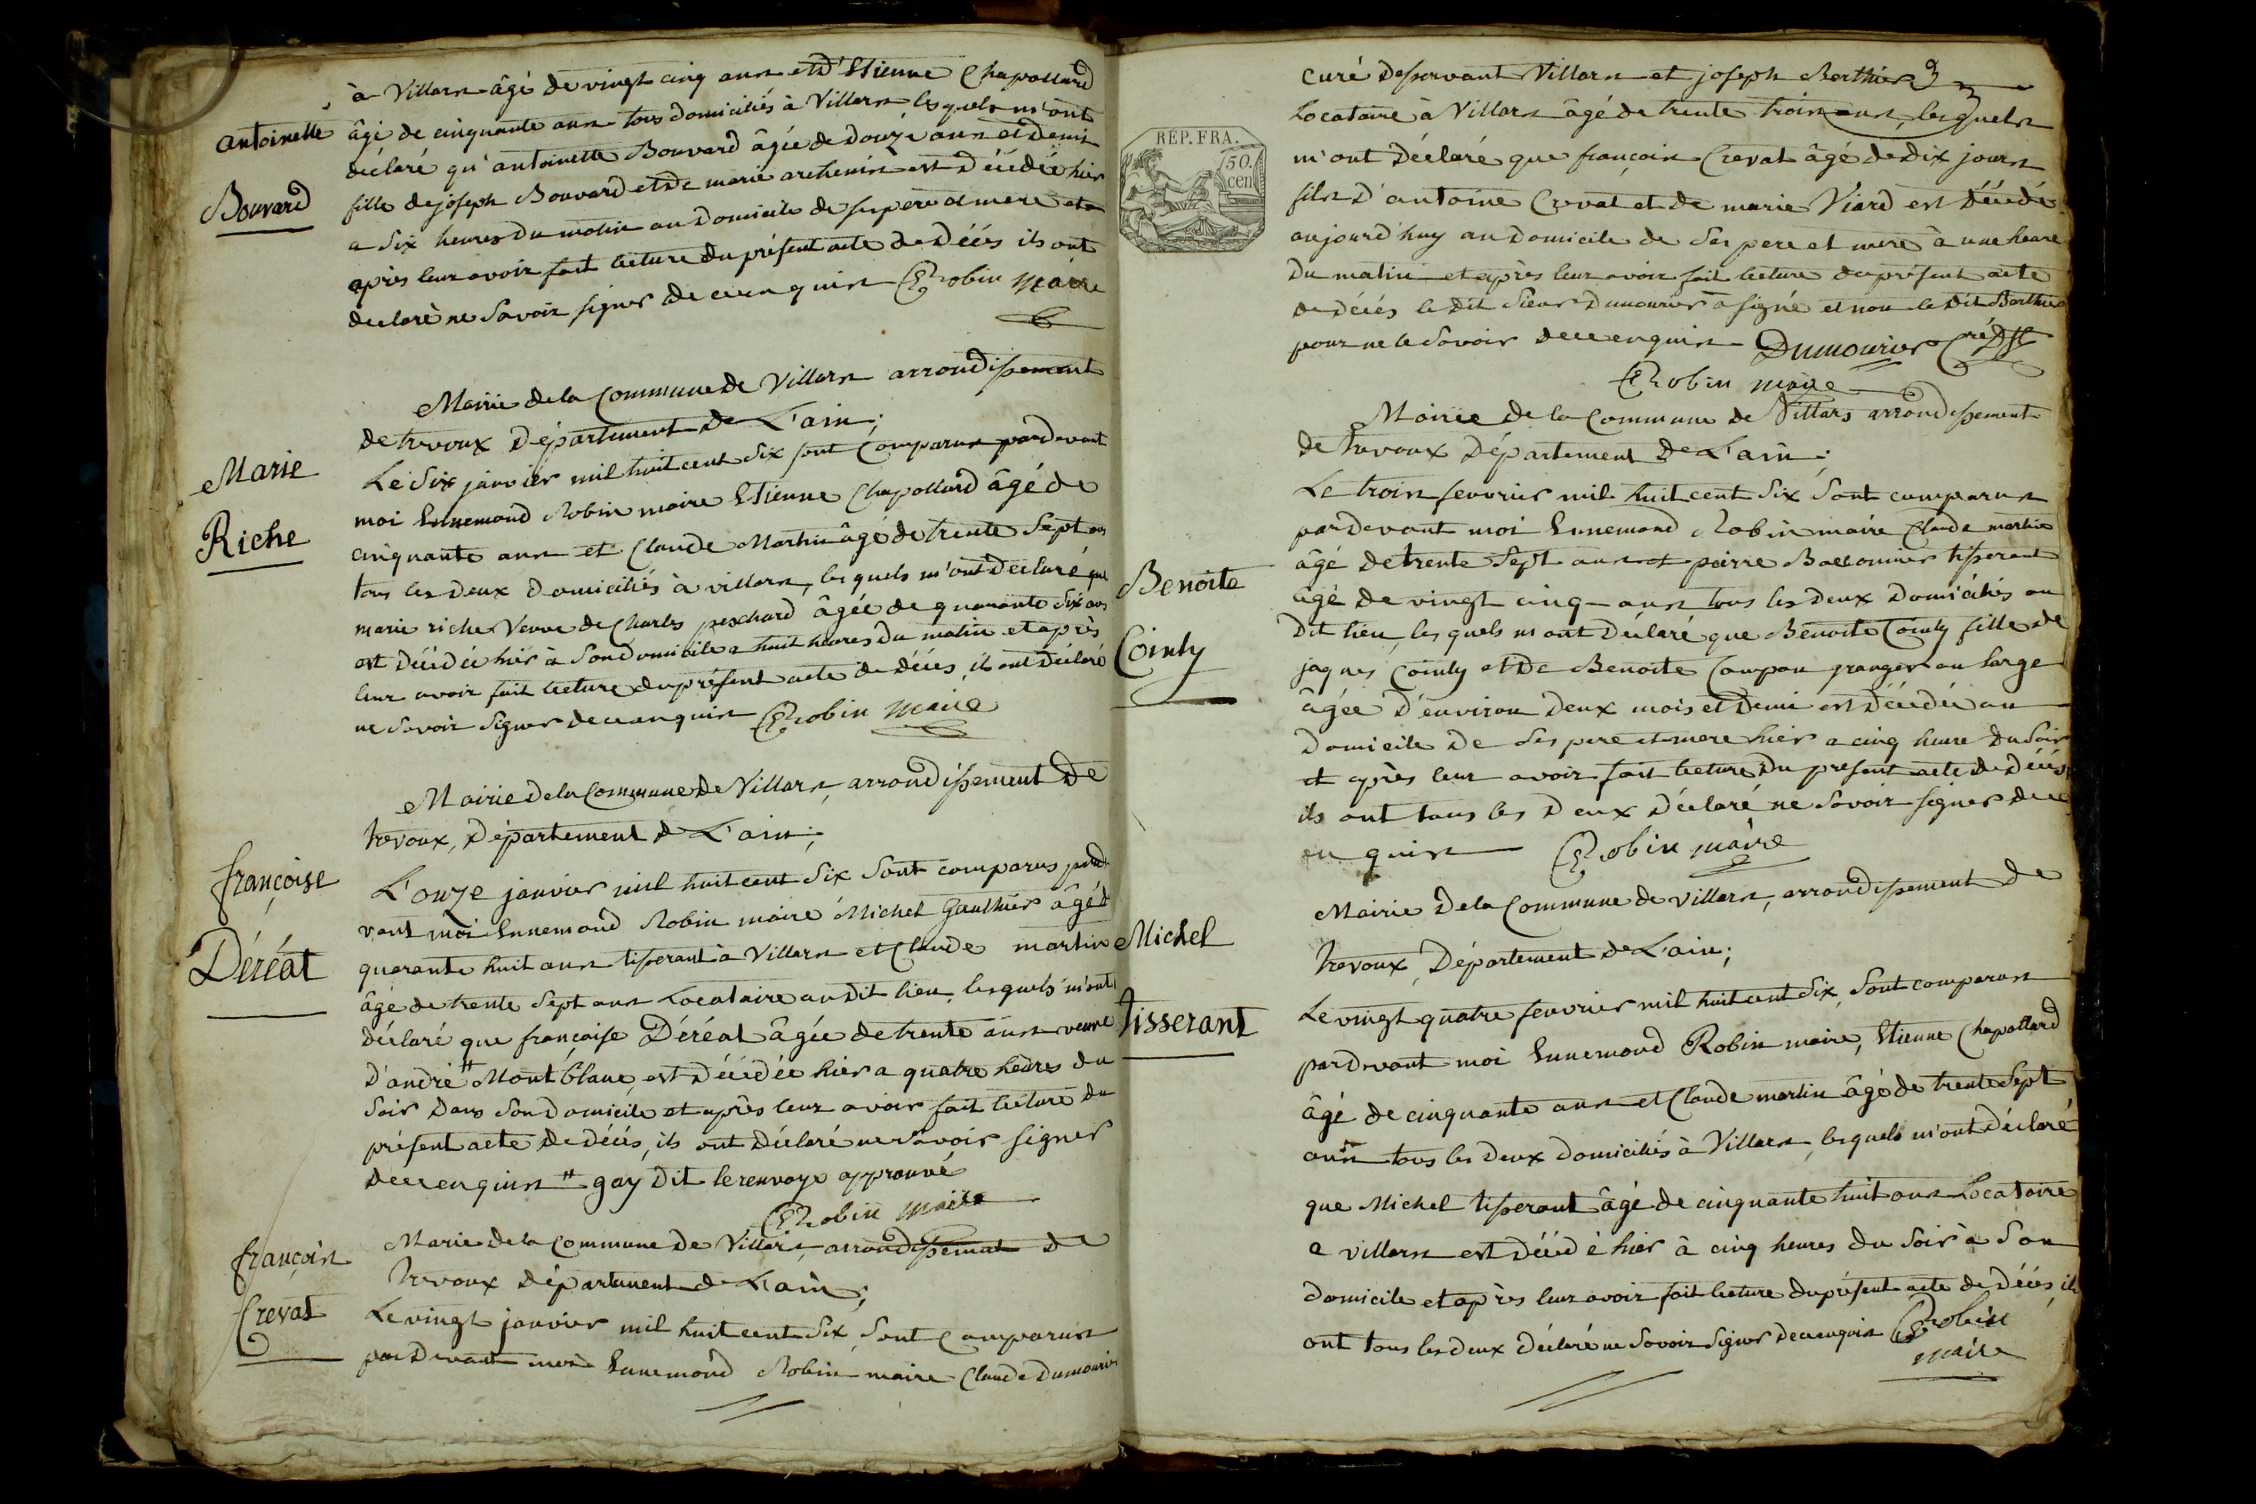 à Villars âgé de vingt cinq ans et d'Etienne Chapollard
antoinette
âgé de cinquante ans tous domiciliés à Villars lesquels m'ont
déclaré qu'antoinette Bouvard âgée de douze ans et demi
Bouvard
fille de joseph Bouvard et de marie archenis est décédée hier
a six heures du matin au domicile de ses pere et mere et
après leur avoir fait lecture du présent acte de décés ils ont
declaré ne savoir signer de ce enquis E Robin Maire
Mairie de la Commune de Villars arrondissement
de trevoux Département de L'ain;
Marie
Riche
Le Six janvier mil huit cent Six sont Comparus pardevant
moi Ennemond Robin maire Etienne Chapollard âgé de
cinquante ans et Claude Martin âgé de trente Sept ans
tous les deux domiciliés à villars, lesquels m'ont déclaré que
marie riche Veuve de Charles peschard âgée de quarante six ans
est décédée hier à Son domicile a huit heures du matin et après
leur avoir fait lecture du présent acte de décés, ils ont déclaré
ne savoir signer de ce enquis E Robin Maire
Mairie de la Commune de Villars, arrondissement de
trevoux, Département de L'ain;
françoise
Déréat
L'onze janvier mil huit cent Six Sont comparus pard
vant moi Ennemond Robin maire Michel Gauthier âgé d
quarante huit ans tisserant à Villars et Claude martin
âgé de trente Sept ans Locataire au dit lieu, lesquels m'ont
déclaré que françoise Déréat âgée de trente ans veuve
d'andré # Mont blanc est décédée hier a quatre heures du
Soir dans Son Domicile et après leur avoir fait lecture du
présent acte de décés, ils ont déclaré ne savoir signer
de ce enquis # gay dit le renvoye approuvé
E Robin Maire
françois
Crevat
Marie de la Commune de Villars, arrondissement de
Trevoux Département de L'ain;
Le vingt janvier mil huit cent Six, Sont Comparus
par devant moi Ennemond Robin maire Claude Dumourier
curé desservant Villars et joseph Berthier
Locataire à Villars âgé de trente trois ans, lesquels
RÉP. FRA.
50.
cen
m'ont déclaré que françois Crevat âgé de dix jours
fils d'antoine Crevat et de marie Viard est décédé
aujourd'huy au domicile de Ses pere et mere à une heure
du matin et après leur avoir fait lecture du présent acte
de décés le dit Sieur Dumourier a signé et non le dit Berthier
pour ne le Savoir de ce enquis Dumourier
E Robin maire
Mairie de la Commune de Villars arrondissement
de Trevoux Département de L'ain;
Benoite
Cointy
Le trois fevrier mil huit cent Six Sont comparus
pardevant moi Ennemond Robin maire Claude martin
âgé de trente Sept ans et pierre tisserant
âgé de vingt cinq ans tous les deux domiciliés au
dit lieu, lesquels m'ont déclaré que Benoite Cointy fille de
jaques Cointy et de Benoite Coupon granger au large
âgée d'environ deux mois et demi est décédée au
domicile de Ses pere et mere hier a cinq heure du Soir
et après leur avoir fait lecture du present acte de décés
ils ont tous les deux déclaré ne Savoir signer de ce
en quis E Robin maire
Michel
Tisserant
Mairie de la Commune de villars, arrondissement de
Trevoux, Département de L'ain;
Le vingt quatre fevrier mil huit cent Six, Sont comparus
pardevant moi Ennemond Robin maire, Etienne Chapollard
âgé de cinquante ans et Claude martin âgé de trente Sept
ans tous les deux domiciliés à Villars, lesquels m'ont déclaré
que Michel tisserant âgé de cinquante huit ans Locataire
a villars est décédé hier à cinq heures du Soir à Son
domicile et après leur avoir fait lecture du présent acte de décés, ils
ont tous les deux déclaré ne Savoir signer de ce enquis E Robin
maire